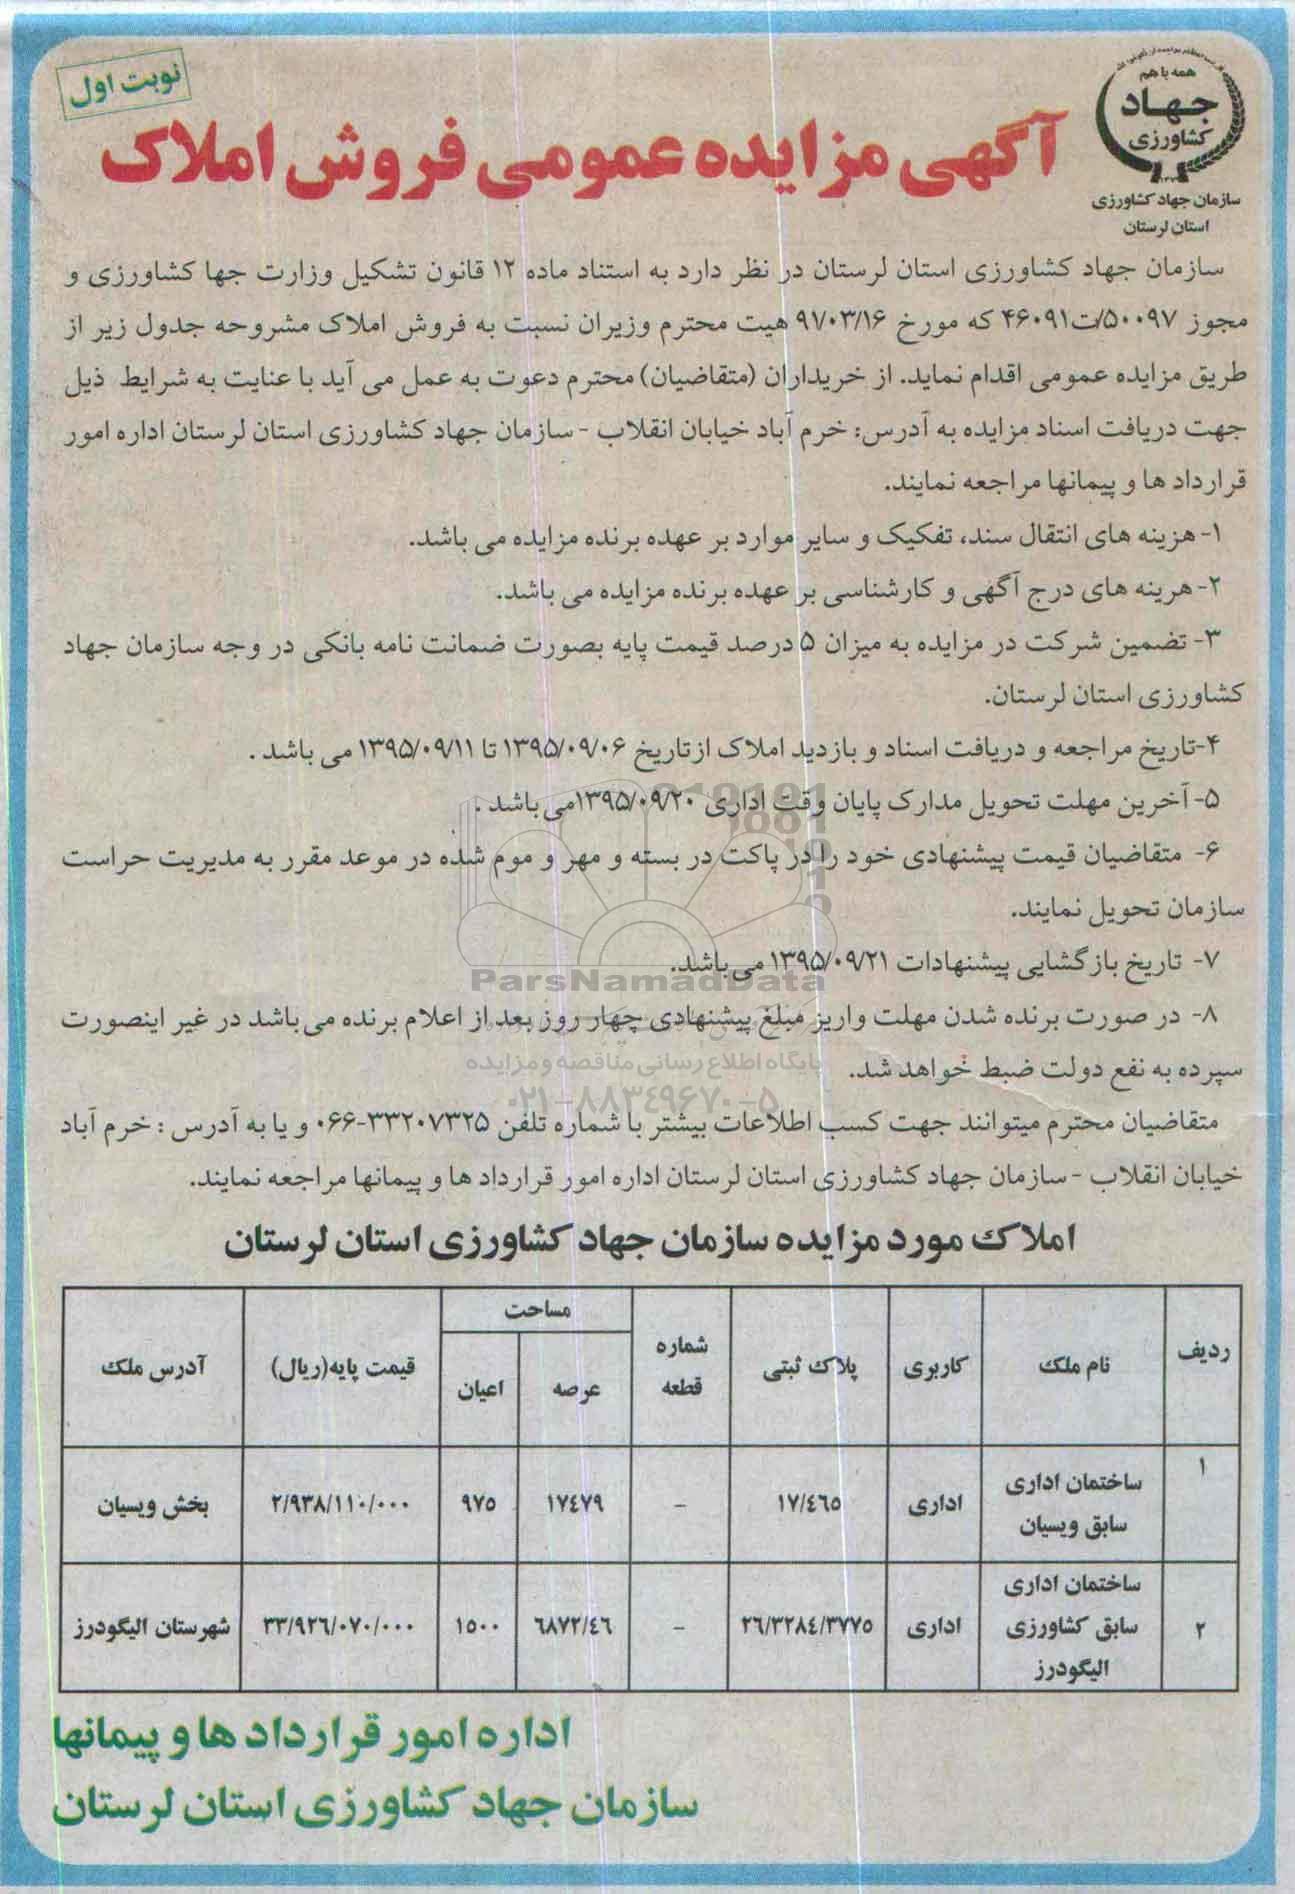 نوبت اول
همه با هم
جهاد
کشاورزی
سازمان جهاد کشاورزی
استان لرستان
آگهی مزایده عمومی فروش املاک
سازمان جهاد کشاورزی استان لرستان در نظر دارد به استناد ماده ۱۲ قانون تشکیل وزارت جها کشاورزی و
مجوز ۵۰۰۹۷/ت۴۶۰۹۱ که مورخ ۹۱/۰۳/۱۶ هیت محترم وزیران نسبت به فروش املاک مشروحه جدول زیر از
طریق مزایده عمومی اقدام نماید. از خریداران (متقاضیان) محترم دعوت به عمل می آید با عنایت به شرایط ذیل
جهت دریافت اسناد مزایده به آدرس: خرم آباد خیابان انقلاب - سازمان جهاد کشاورزی استان لرستان اداره امور
قرارداد ها و پیمانها مراجعه نمایند.
۱- هزینه های انتقال سند، تفکیک و سایر موارد بر عهده برنده مزایده می باشد.
۲- هرینه های درج آگهی و کارشناسی بر عهده برنده مزایده می باشد.
۳- تضمین شرکت در مزایده به میزان ۵ درصد قیمت پایه بصورت ضمانت نامه بانکی در وجه سازمان جهاد
کشاورزی استان لرستان.
۴-تاریخ مراجعه و دریافت اسناد و بازدید املاک ازتاریخ ۱۳۹۵/۰۹/۰۶ تا ۱۳۹۵/۰۹/۱۱ می باشد .
۵- آخرین مهلت تحویل مدارک پایان وقت اداری ۱۳۹۵/۰۹/۲۰می باشد .
۶- متقاضیان قیمت پیشنهادی خود را در پاکت در بسته و مهر و موم شده در موعد مقرر به مدیریت حراست
سازمان تحویل نمایند.
۷- تاریخ بازگشایی پیشنهادات ۱۳۹۵/۰۹/۲۱ می‌باشد.
ParsNamadData
۸- در صورت برنده شدن مهلت واریز مبلغ پیشنهادی چهار روز بعد از اعلام برنده می‌باشد در غیر اینصورت
سپرده به نفع دولت ضبط خواهد شد.
پایگاه اطلاع رسانی مناقصه و مزایده
۰۲۱-۸۸۳۴۹۶۷۰-۵
متقاضیان محترم میتوانند جهت کسب اطلاعات بیشتر با شماره تلفن ۳۳۲۰۷۳۲۵-۰۶۶ و یا به آدرس : خرم آباد
خیابان انقلاب - سازمان جهاد کشاورزی استان لرستان اداره امور قرارداد ها و پیمانها مراجعه نمایند.
املاک مورد مزایده سازمان جهاد کشاورزی استان لرستان
ردیف نام ملک کاربری پلاک ثبتی شماره قطعه مساحت عرصه اعیان قیمت پایه(ریال) آدرس ملک
۱ ساختمان اداری سابق ویسیان اداری ۱۷/٤٦٥ - ۱۷٤۷۹ ۹۷٥ ۲/۹۳۸/۱۱۰/۰۰۰ بخش ویسیان
۲ ساختمان اداری سابق کشاورزی الیگودرز اداری ۲٦/۳۲۸٤/۳۷۷٥ - ٦۸۷۲/٤٦ ۱٥۰۰ ۳۳/۹۲٦/۰۷۰/۰۰۰ شهرستان الیگودرز
اداره امور قرارداد ها و پیمانها
سازمان جهاد کشاورزی استان لرستان